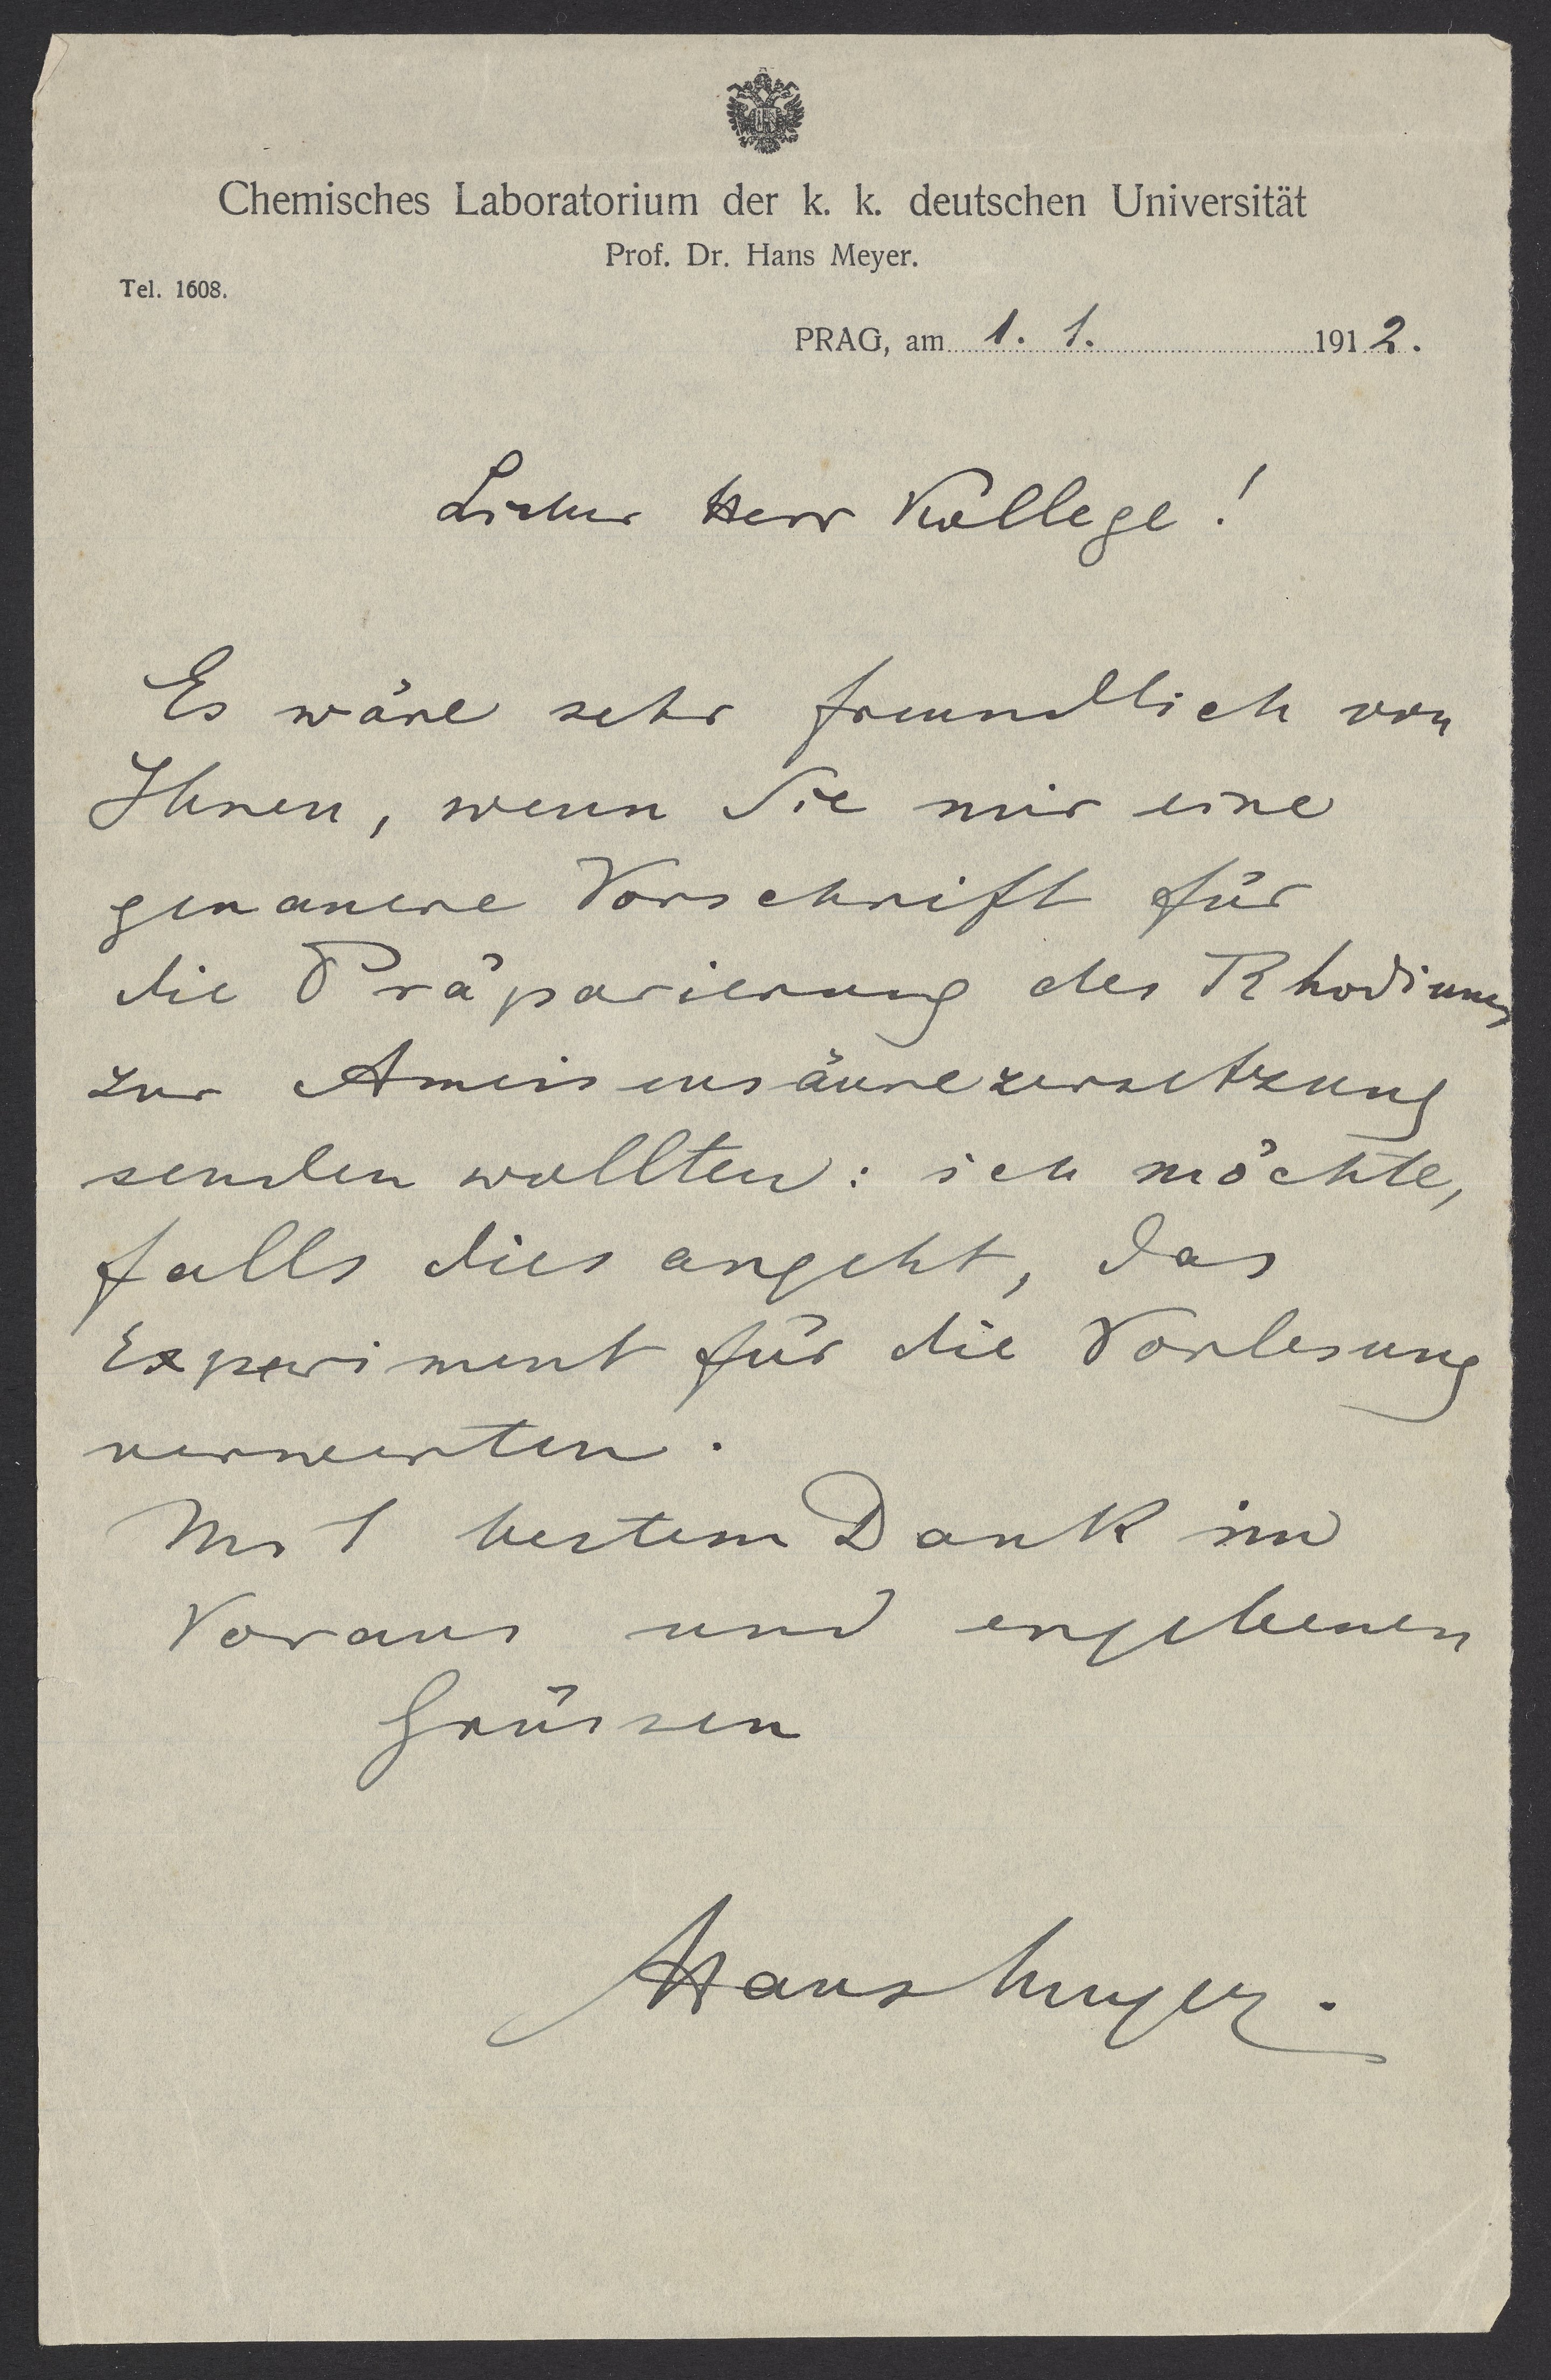 Chemisches Laboratorium der k. k. deutschen Universität
Prof. Dr. Hans Meyer.
Tel. 1608.
PRAG, am 1. 1. 1912.
Lieber Herr Kollege!
Es wäre sehr freundlich von
Ihnen, wenn Sie mir eine
genauere Vorschrift für
die Präparierung des Rhodiums
zur Ameisensäurezersetzung
senden wollten: ich möchte,
falls dies angeht, das
Experiment für die Vorlesung
verwerten.
Mit bestem Dank im
Voraus und ergebenen
Grüssen
Hans Meyer.